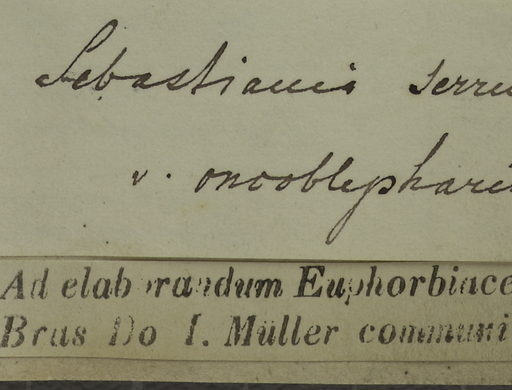 Sebastiania serru
v. oncoblephari
Ad elaborandum Euphorbiace
Bras Do I. Müller communi